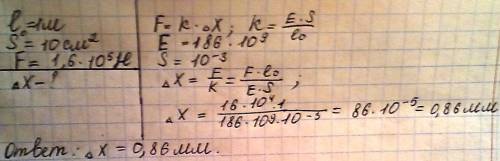 l₀=1м
S=10см²
F=1,6·10⁵Н
△X-?
F=k·△X; k=E·S/l₀
E=186·10⁹
S=10⁻³
△X=F/k=F·l₀/E·S;
△X=16·10⁴·1/186·10⁹·10⁻³=86·10⁻⁵=0,86мм
Ответ: △X=0,86мм.